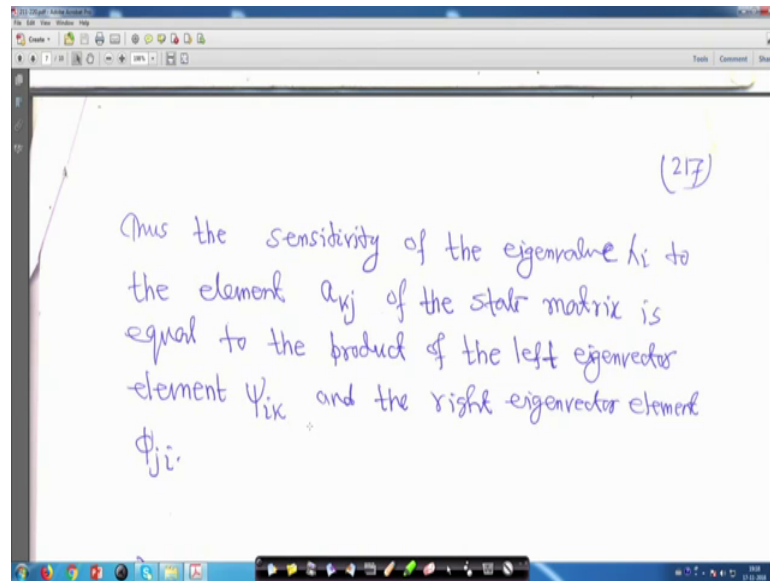 211-220.pdf - Adobe Acrobat Pro
File Edit View Window Help
Create
Tools Comment
(217)
Thus the sensitivity of the eigenvalue λi to
the element akj of the state matrix is
equal to the product of the left eigenvector
element ψik and the right eigenvector element
ϕji.